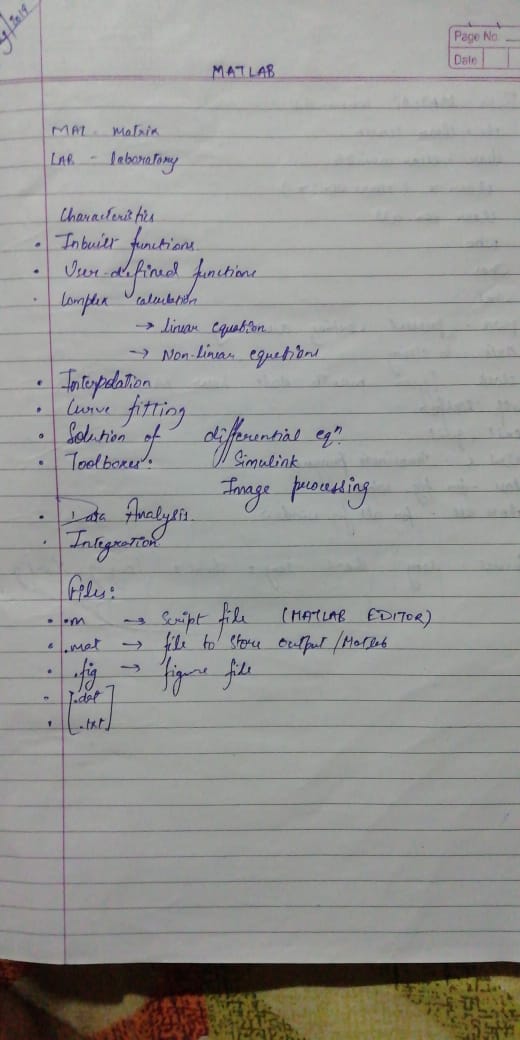 2019
Page No.
Date
MATLAB
MAT - Matrix
LAB - laboratory
Characteristics
• Inbuilt functions
• User-defined functions
• Complex calculation
→ linear equation
→ Non-linear equations
• Interpolation
• Curve fitting
• Solution of differential eqn.
• Toolboxes: Simulink
Image processing
• Data Analysis
• Integration
Files:
• .m → Script file (MATLAB EDITOR)
• .mat → file to store output/Matlab
• .fig → figure file
• [.dat
• .txt]